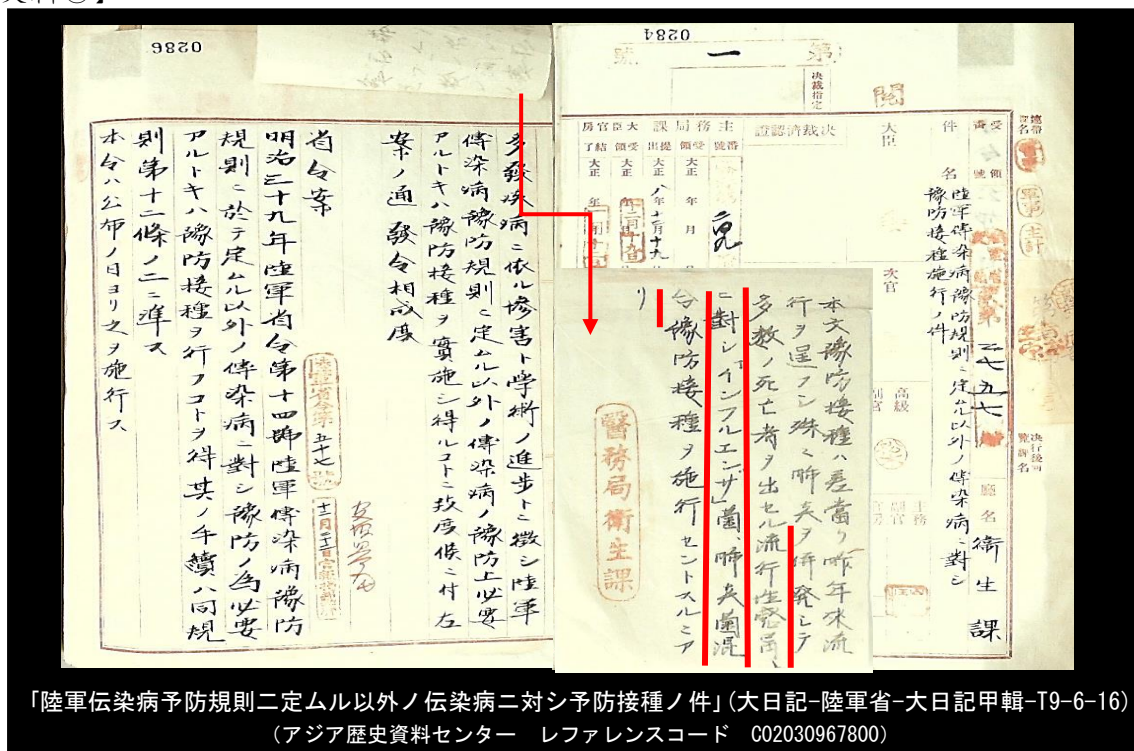 0286
0284
第一號
決裁指定
閲
連帶
受領番號
三七九七
廳名
衛生課
件名
陸軍傳染病豫防規則ニ定ムル以外ノ傳染病ニ對シ
豫防接種施行ノ件
大臣
次官
高級
決裁濟認證
主務局課
番號
受領
大正 年 月
提出
大正八年十二月十九
大臣官房
受領
大正
結了
大正 年
本文豫防接種ハ差當リ昨年來流
行ヲ逞フシ殊ニ肺炎ヲ併発シテ
多数ノ死亡者ヲ出セル流行性感冒
ニ對シ「インフルエンザ」菌、肺炎菌混
合豫防接種ヲ施行セントスルニア
リ
醫務局衛生課
多發疾病ニ依ル惨害ト學術ノ進歩ニ徴シ陸軍
傳染病豫防規則ニ定ムル以外ノ傳染病ノ豫防上必要
アルトキハ豫防接種ヲ實施シ得ルコトニ致度候ニ付左
案ノ通發令相成度
省令案
陸軍省令第五十七號
明治三十九年陸軍省令第十四號陸軍傳染病豫防
規則ニ於テ定ムル以外ノ傳染病ニ對シ豫防ノ為必要
アルトキハ豫防接種ヲ行フコトヲ得其ノ手續ハ同規
則第十二條ノ二ニ準ス
本令ハ公布ノ日ヨリ之ヲ施行ス
「陸軍伝染病予防規則ニ定ムル以外ノ伝染病ニ対シ予防接種ノ件」(大日記-陸軍省-大日記甲輯-T9-6-16)
(アジア歴史資料センター　レファレンスコード　C02030967800)